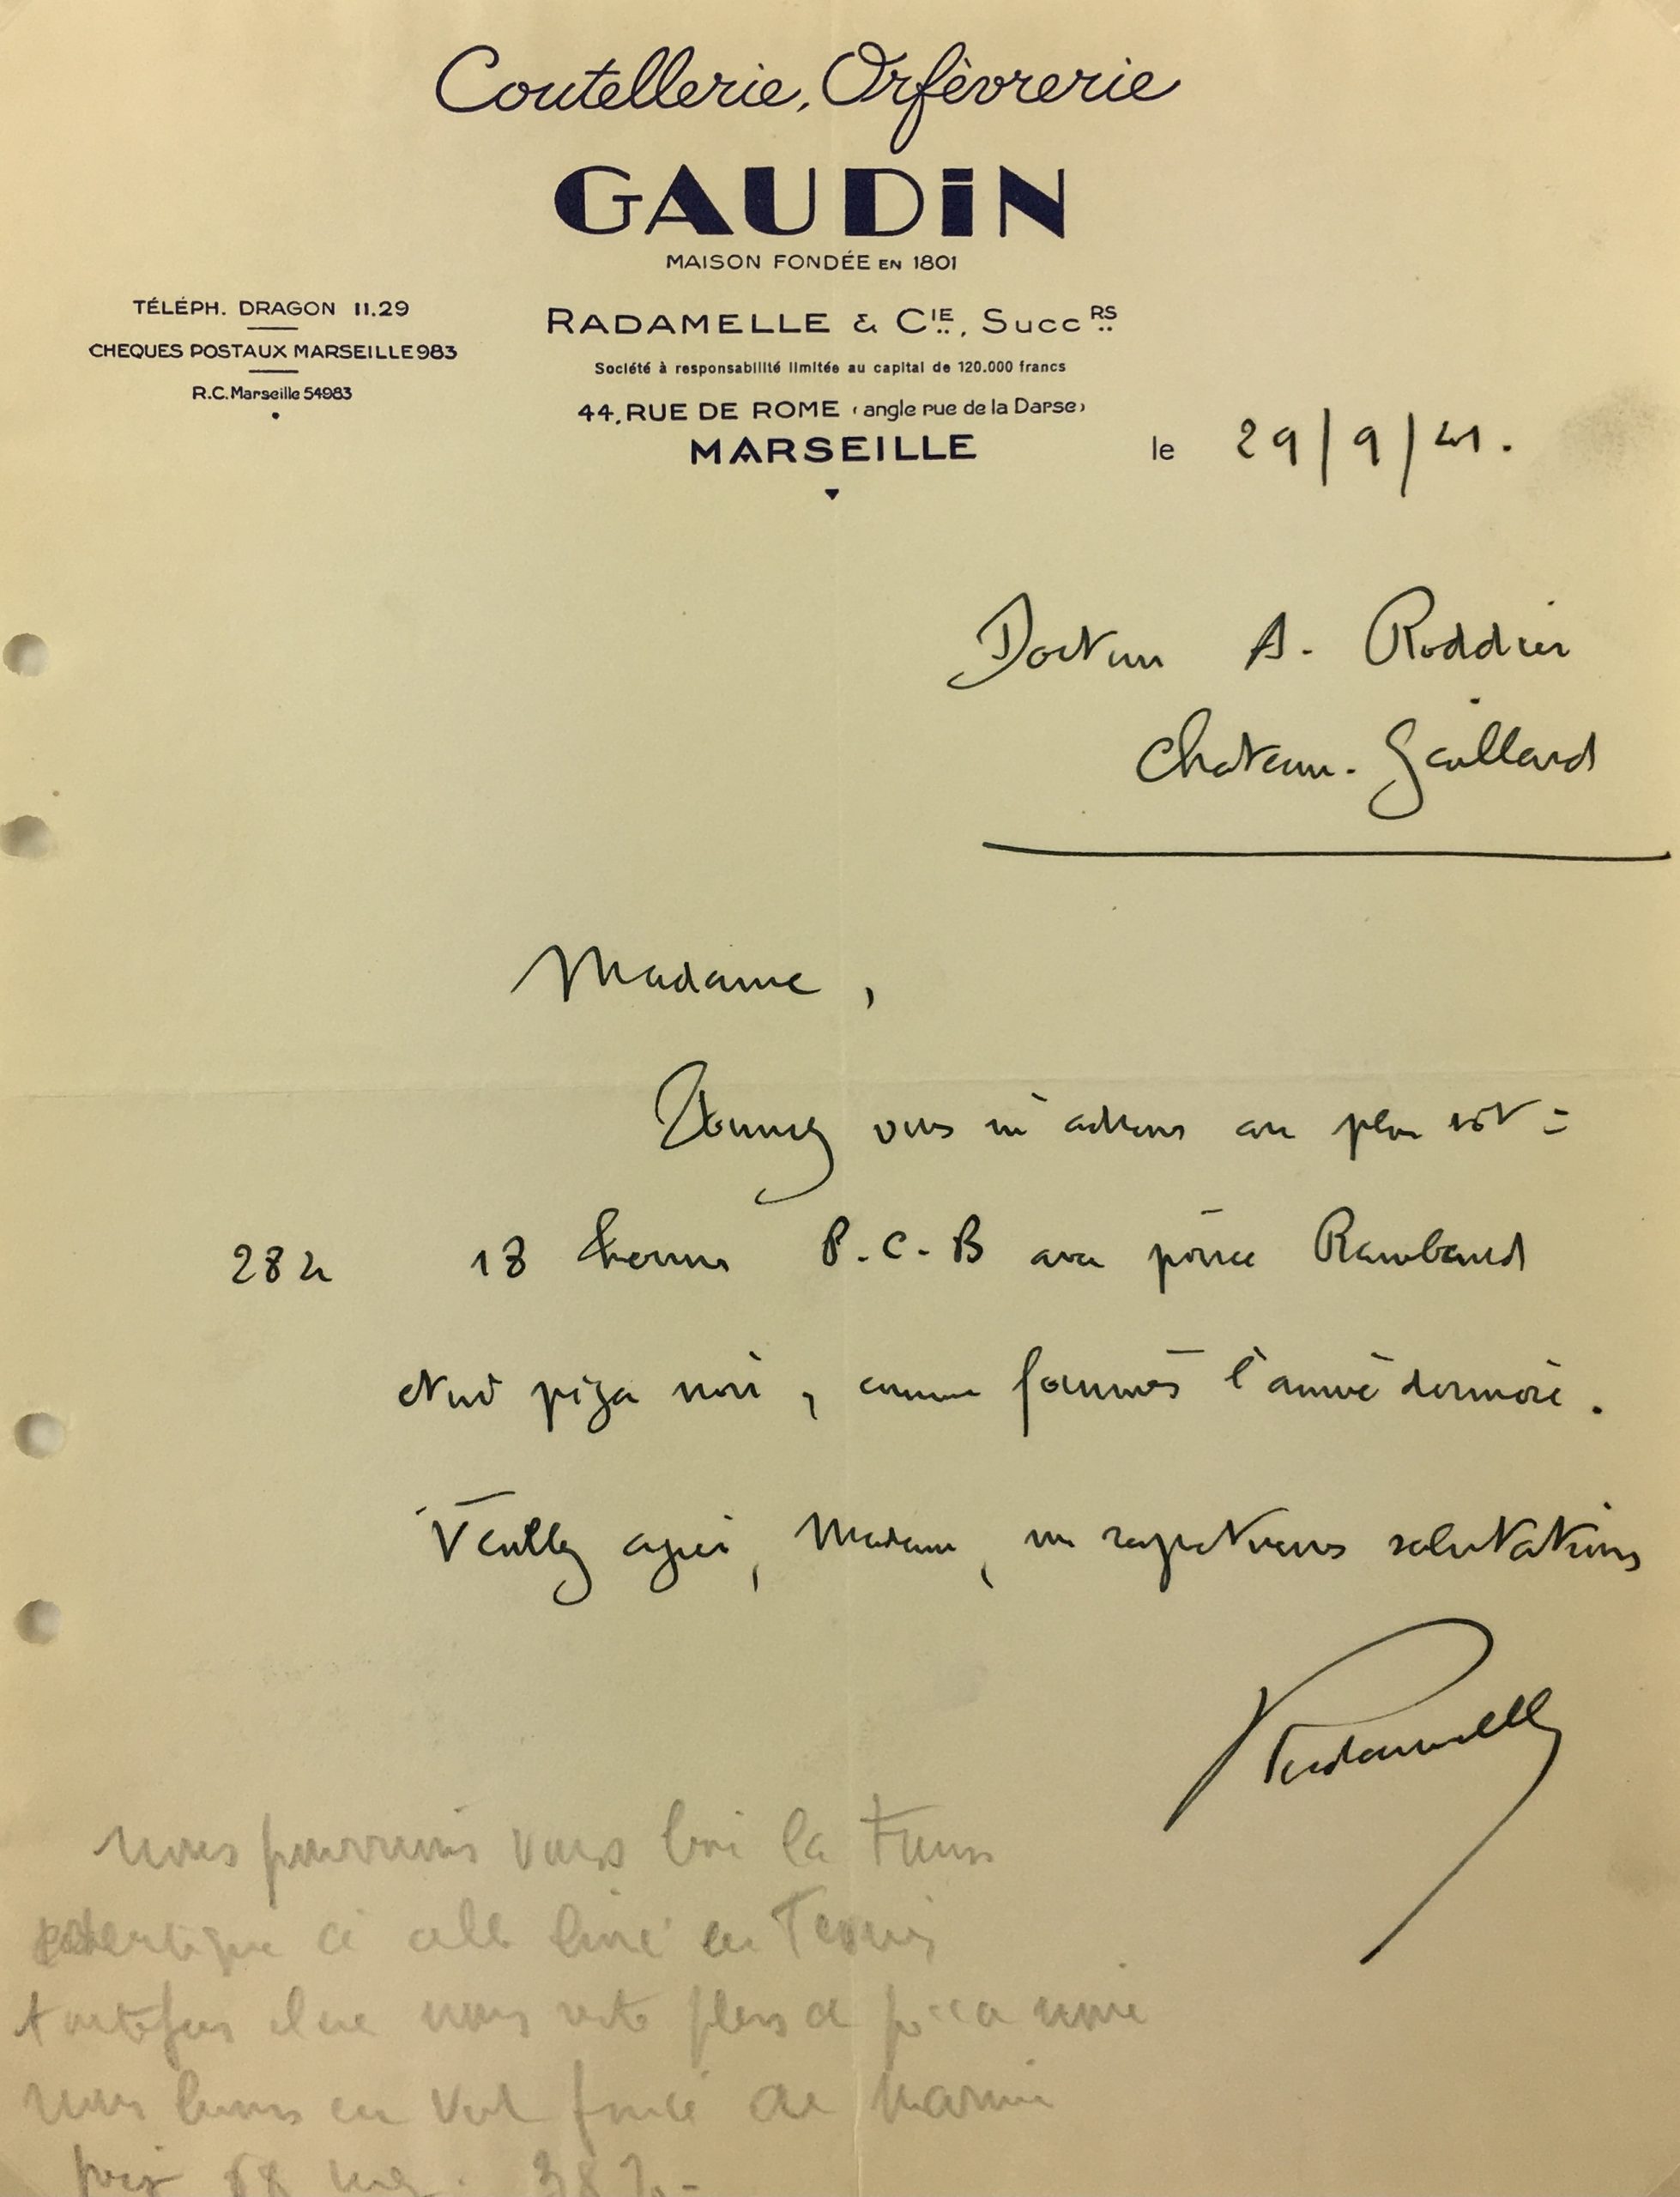 Coutellerie, Orfèvrerie
GAUDIN
MAISON FONDÉE EN 1801
TÉLÉPH. DRAGON 11.29
CHEQUES POSTAUX MARSEILLE 983
R.C. Marseille 54983
RADAMELLE & CIE, SuccRS
Société à responsabilité limitée au capital de 120.000 francs
44, RUE DE ROME (angle rue de la Darse)
MARSEILLE
le 29/9/41.
Docteur A. Roddier
Chateau-Gaillard
Madame,
vous m'adresser au plus tôt :
282 18 P.C.B avec pince Rambaud
étui péga noir, comme fournies l'année dernière.
Veuillez agréer, Madame, mes respectueuses salutations
Radamelle
nous pourrions vous la
livrer en
toutefois il ne nous reste plus de noir
nous en vert foncé ou marine
prix